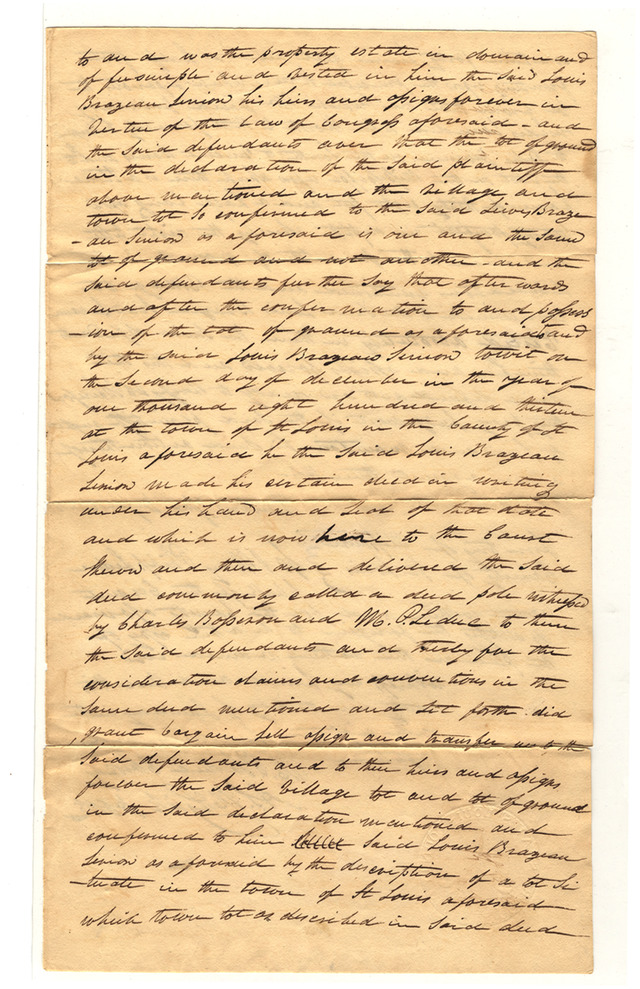 to and was the property estate in domain and
of fee simple and vested in him the said Louis
Brazeau Senior his heirs and assigns forever in
Vertue of the Law of Congress aforesaid - and
the said defendants aver that the lot of ground
in the declaration of the said plaintiff
above mentioned and the village and
town lot so confirmed to the said Louis Braze
-au Senior as aforesaid is one and the same
lot of ground and not an other - and the
said defendants further say that afterwards
and after the confirmation to and possess
-ion of the lot of ground as aforesaid and
by the said Louis Brazeau Senior towit on
the second day of december in the year of
one thousand eight hundred and thirteen
at the town of St Louis in the County of St
Louis aforesaid he the said Louis Brazeau
Senior made his certain deed in writing
under his hand and seal of that date
and which is now here to the Court
shown and then and delivered the said
deed commonly called a deed pole witnessed
by Charles Bosseron and M. P. Leduc to them
the said defendants and thereby for the
consideration claims and conventions in the
same deed mentioned and set forth did
grant bargain sell assign and transfer to the
said defendants and to their heirs and assigns
forever the said village lot and lot of ground
in the said declaration mentioned and
confirmed to him said Louis Brazeau
Senior as aforesaid by the description of a lot Si
-tuate in the town of St Louis aforesaid
which town lot as described in said deed